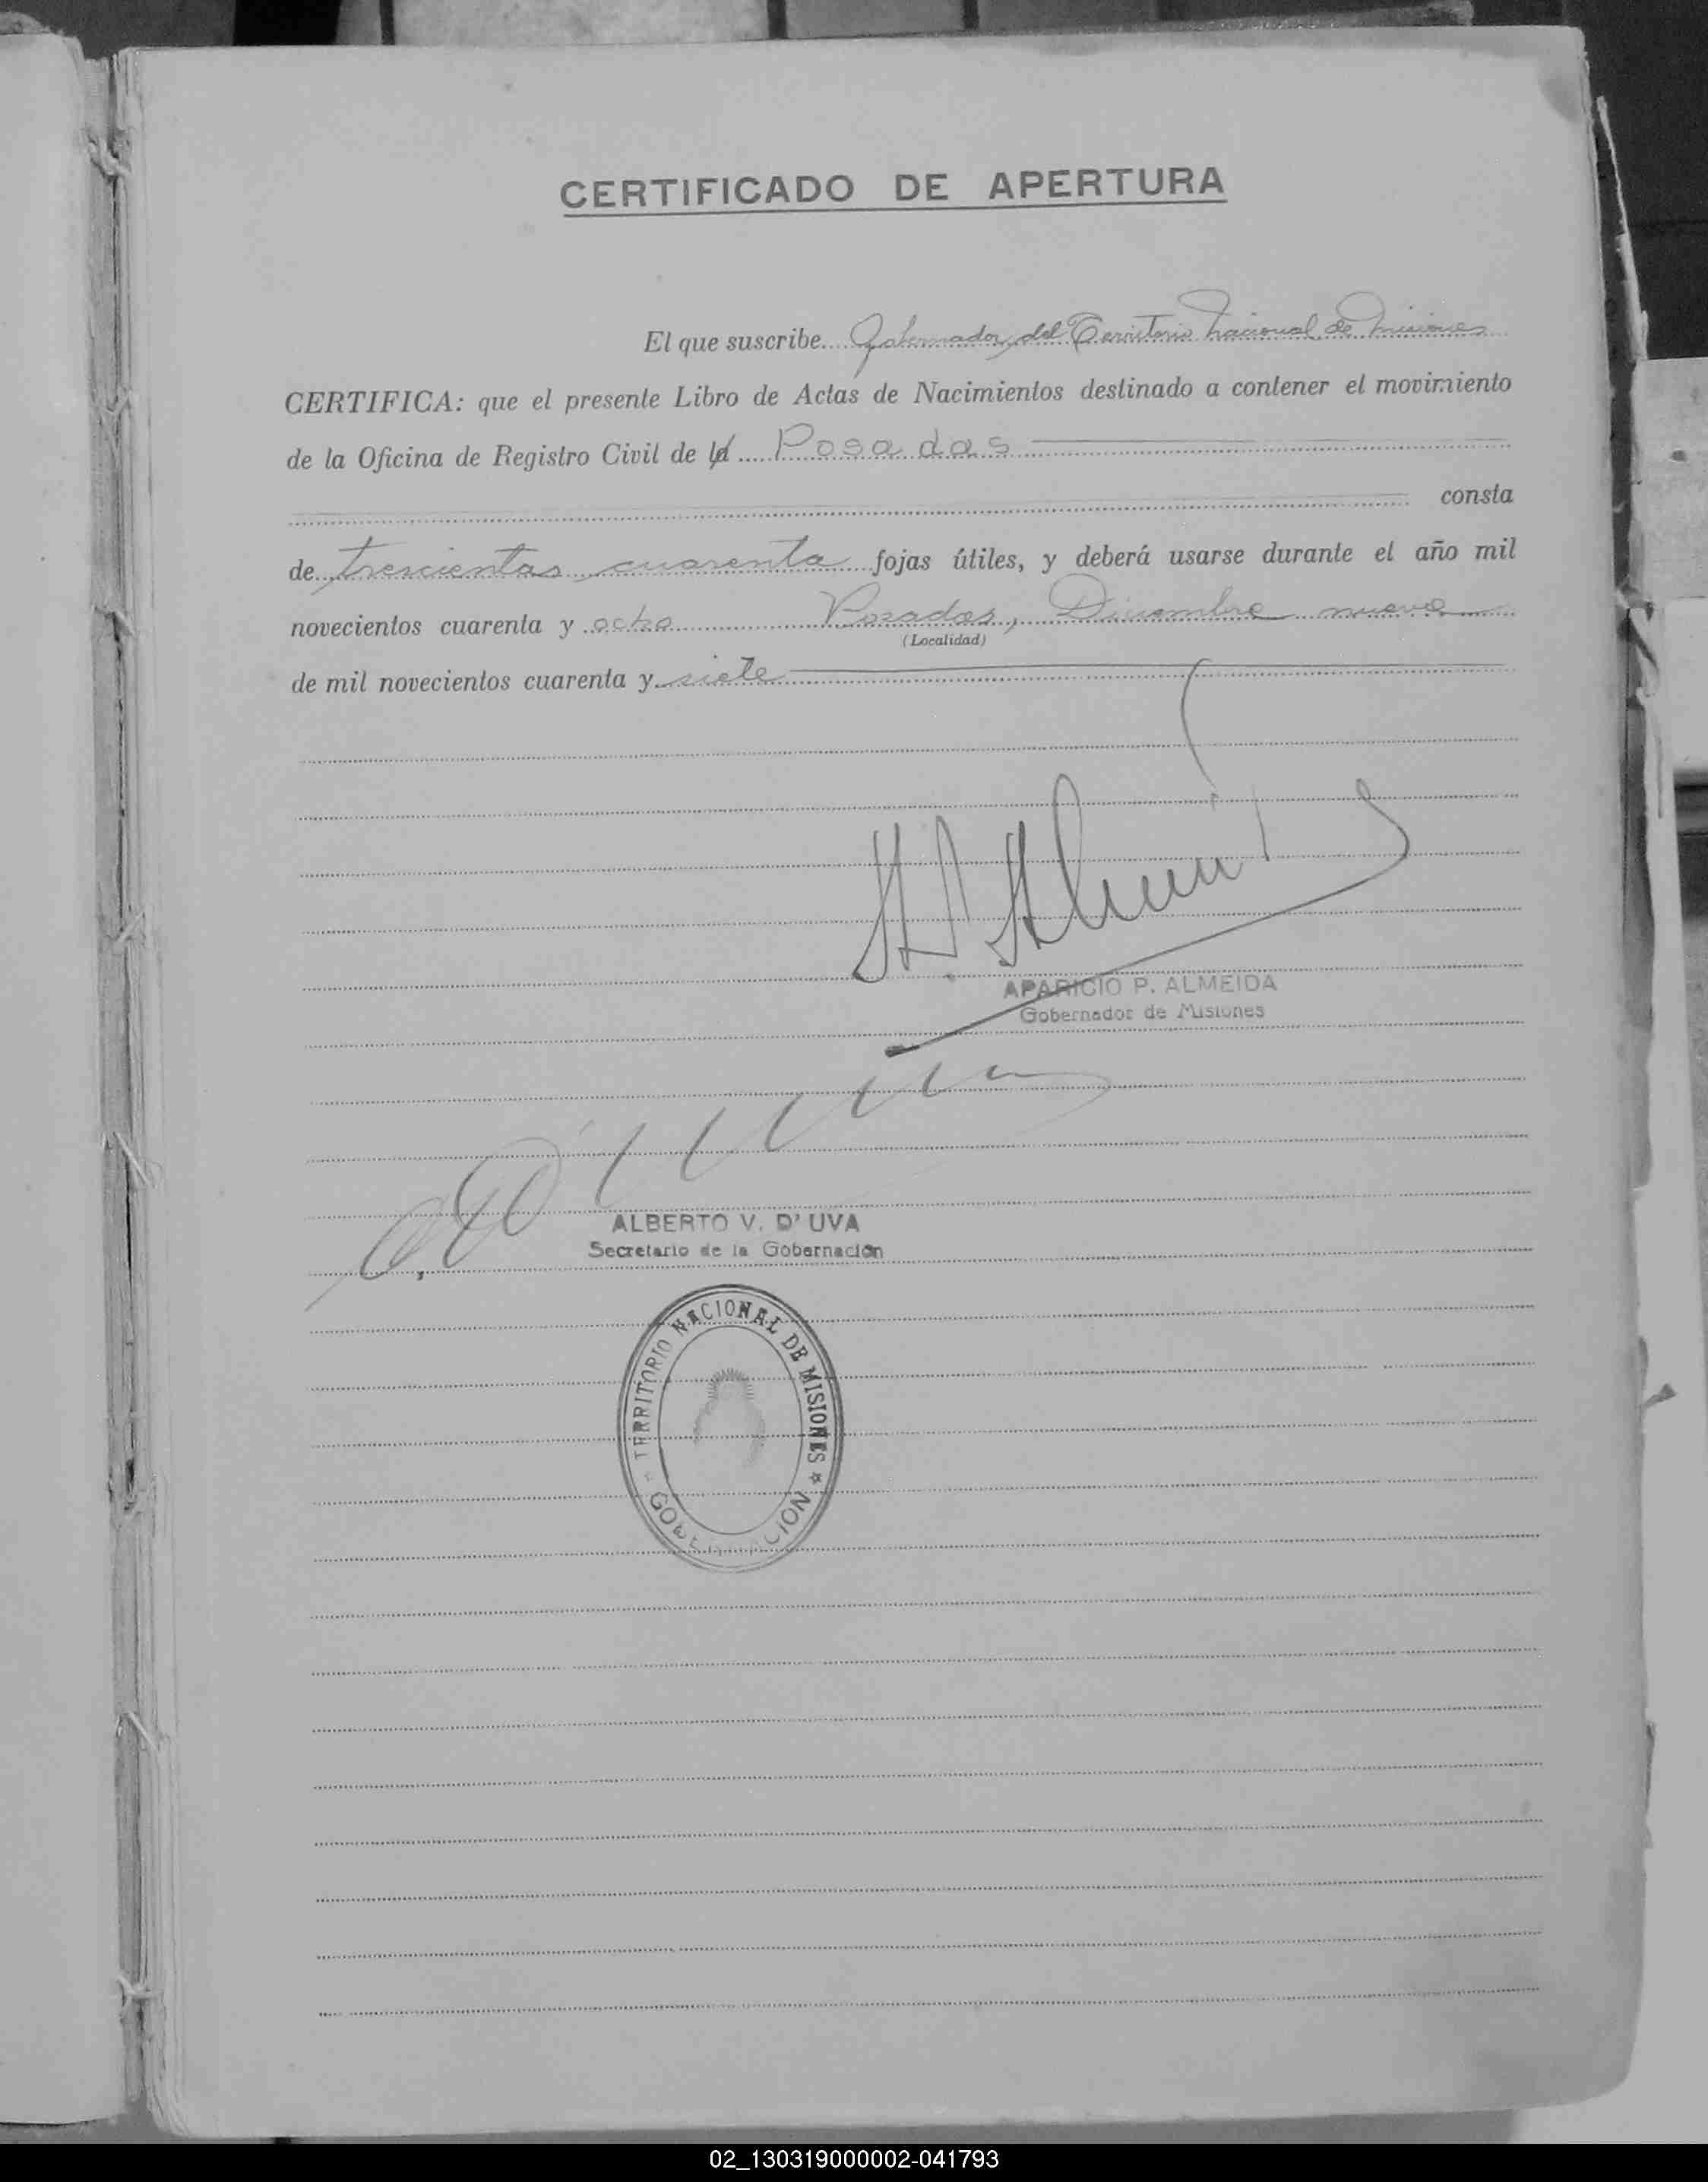 CERTIFICADO DE APERTURA
El que suscribe Gobernador del Territorio Nacional de Misiones
CERTIFICA: que el presente Libro de Actas de Nacimientos destinado a contener el movimiento
de la Oficina de Registro Civil de Posadas
consta
de trescientas cuarenta fojas útiles, y deberá usarse durante el año mil
novecientos cuarenta y ocho Posadas, Diciembre nueve
(Localidad)
de mil novecientos cuarenta y siete
APARICIO P. ALMEIDA
Gobernador de Misiones
ALBERTO V. D'UVA
Secretario de la Gobernación
TERRITORIO NACIONAL DE MISIONES
* GOBERNACION *
02_130319000002-041793